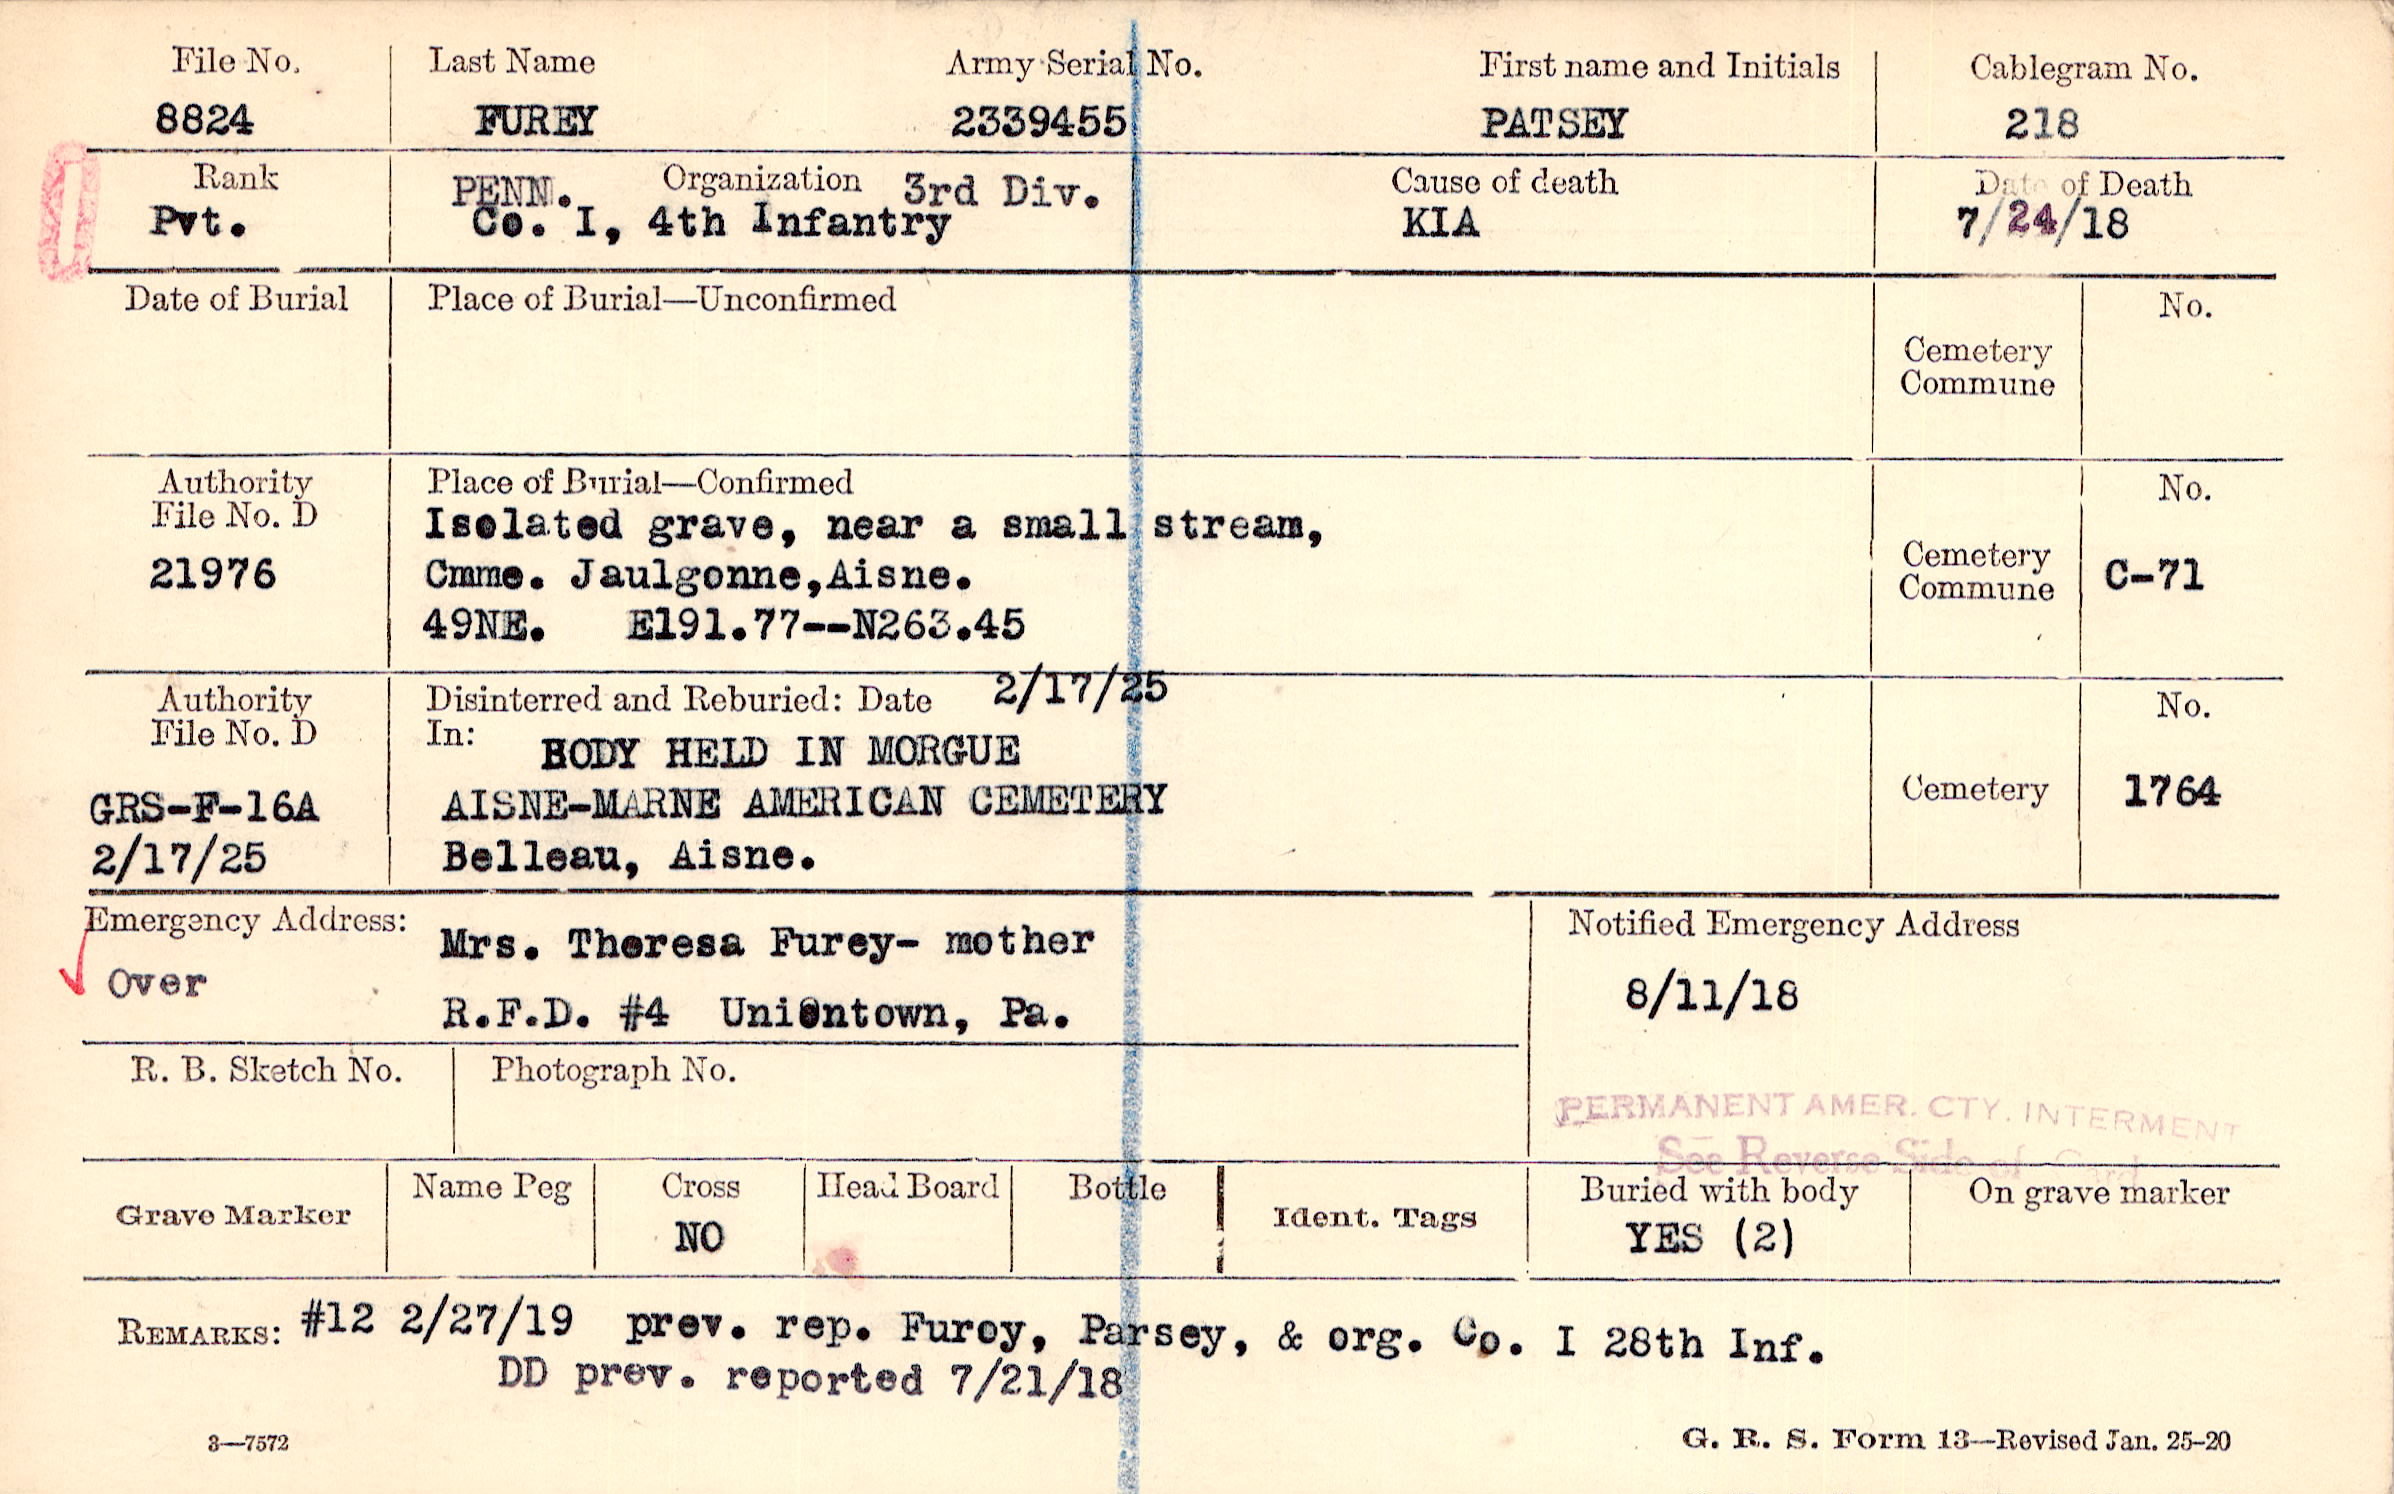 File No. Last Name Army Serial No. First name and Initials Cablegram No.
8824 FUREY 2339455 PATSEY 218
Rank PENN. Organization 3rd Div. Cause of death Date of Death
Pvt. Co. I, 4th Infantry KIA 7/24/18
Date of Burial Place of Burial—Unconfirmed No.
Cemetery
Commune
Authority Place of Burial—Confirmed No.
File No. D Isolated grave, near a small stream,
21976 Cmme. Jaulgonne,Aisne. Cemetery
Commune C-71
49NE. E191.77--N263.45
Authority Disinterred and Reburied: Date 2/17/25 No.
File No. D In: BODY HELD IN MORGUE
GRS-F-16A AISNE-MARNE AMERICAN CEMETERY Cemetery 1764
2/17/25 Belleau, Aisne.
Emergency Address: Mrs. Theresa Furey- mother Notified Emergency Address
Over R.F.D. #4 Uniontown, Pa. 8/11/18
R. B. Sketch No. Photograph No.
PERMANENT AMER. CTY. INTERMENT
See Reverse Side of Card
Grave Marker Name Peg Cross Head Board Bottle Ident. Tags Buried with body On grave marker
NO YES (2)
REMARKS: #12 2/27/19 prev. rep. Furey, Parsey, & org. Co. I 28th Inf.
DD prev. reported 7/21/18
3—7572 G. R. S. Form 13—Revised Jan. 25-20